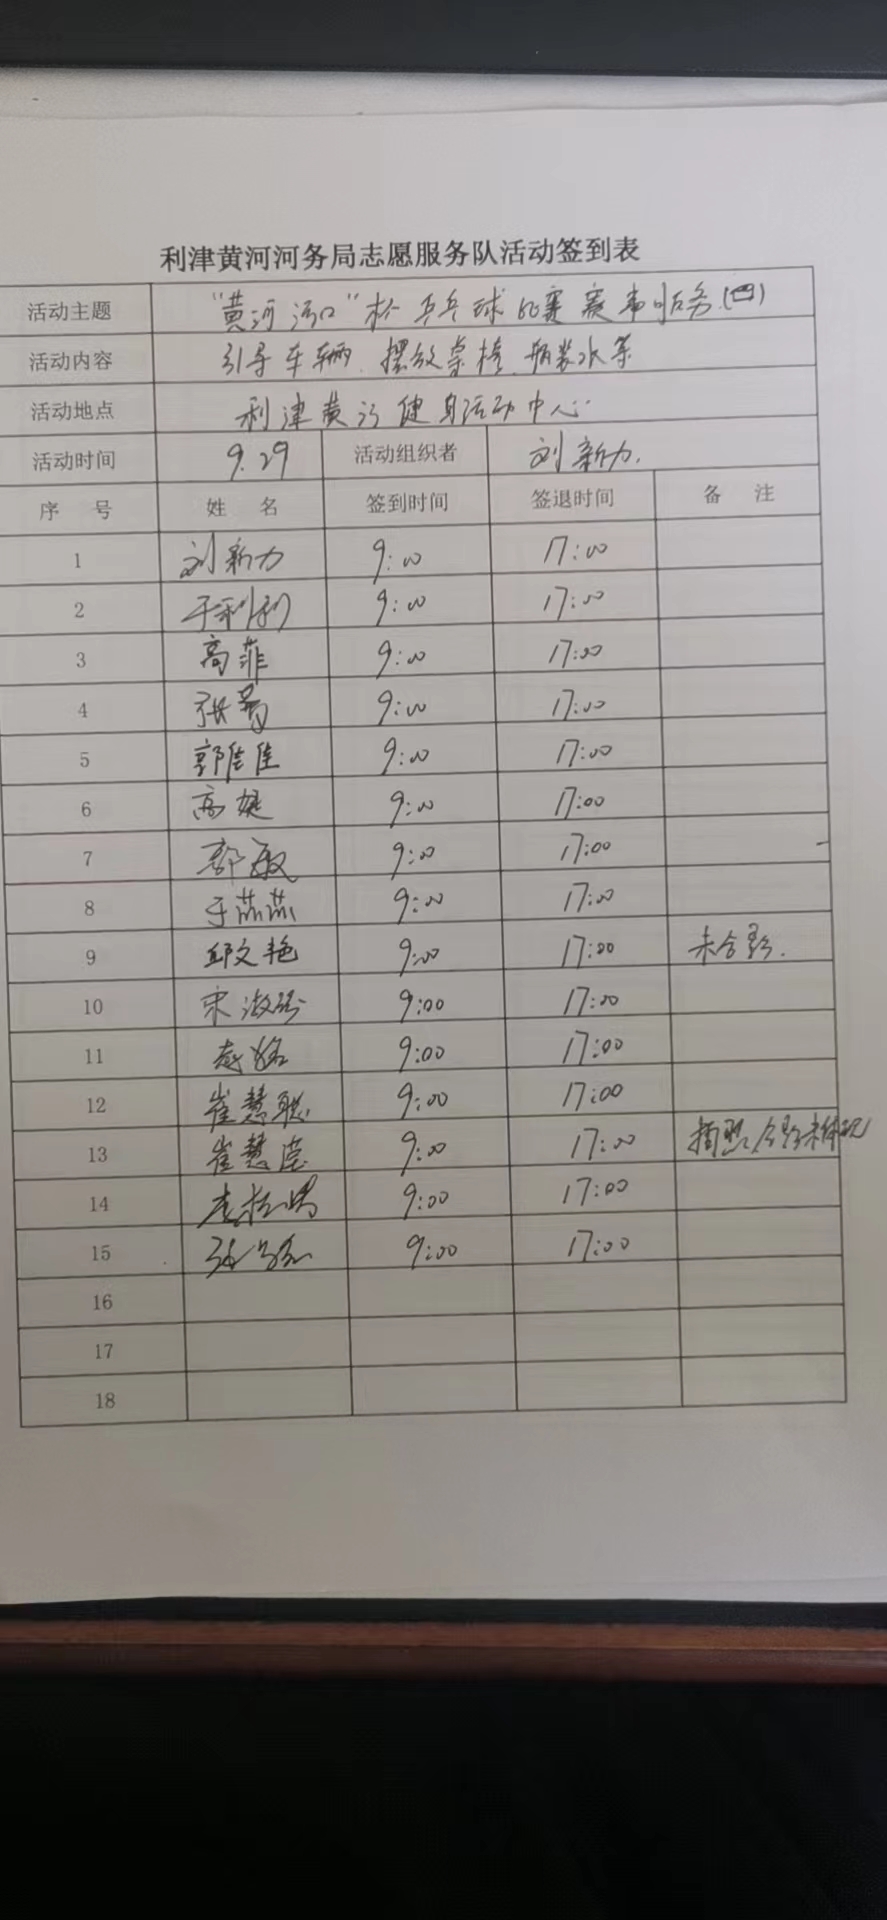 利津黄河河务局志愿服务队活动签到表
活动主题 “黄河河口”杯乒乓球比赛赛事服务(四)
活动内容 引导车辆、摆放桌椅、瓶装水等
活动地点 利津黄河健身活动中心
活动时间 9.29 活动组织者 刘新力
序号 姓名 签到时间 签退时间 备注
1 刘新力 9:00 17:00
2 于利利 9:00 17:00
3 高菲 9:00 17:00
4 张 9:00 17:00
5 郭佳佳 9:00 17:00
6 高婕 9:00 17:00
7 郭敏 9:00 17:00
8 于燕燕 9:00 17:00
9 邱文艳 9:00 17:00 未合影.
10 宋淑 9:00 17:00
11 9:00 17:00
12 崔慧聪 9:00 17:00
13 崔慧滢 9:00 17:00 拍照,合影未体现
14 9:00 17:00
15 9:00 17:00
16
17
18